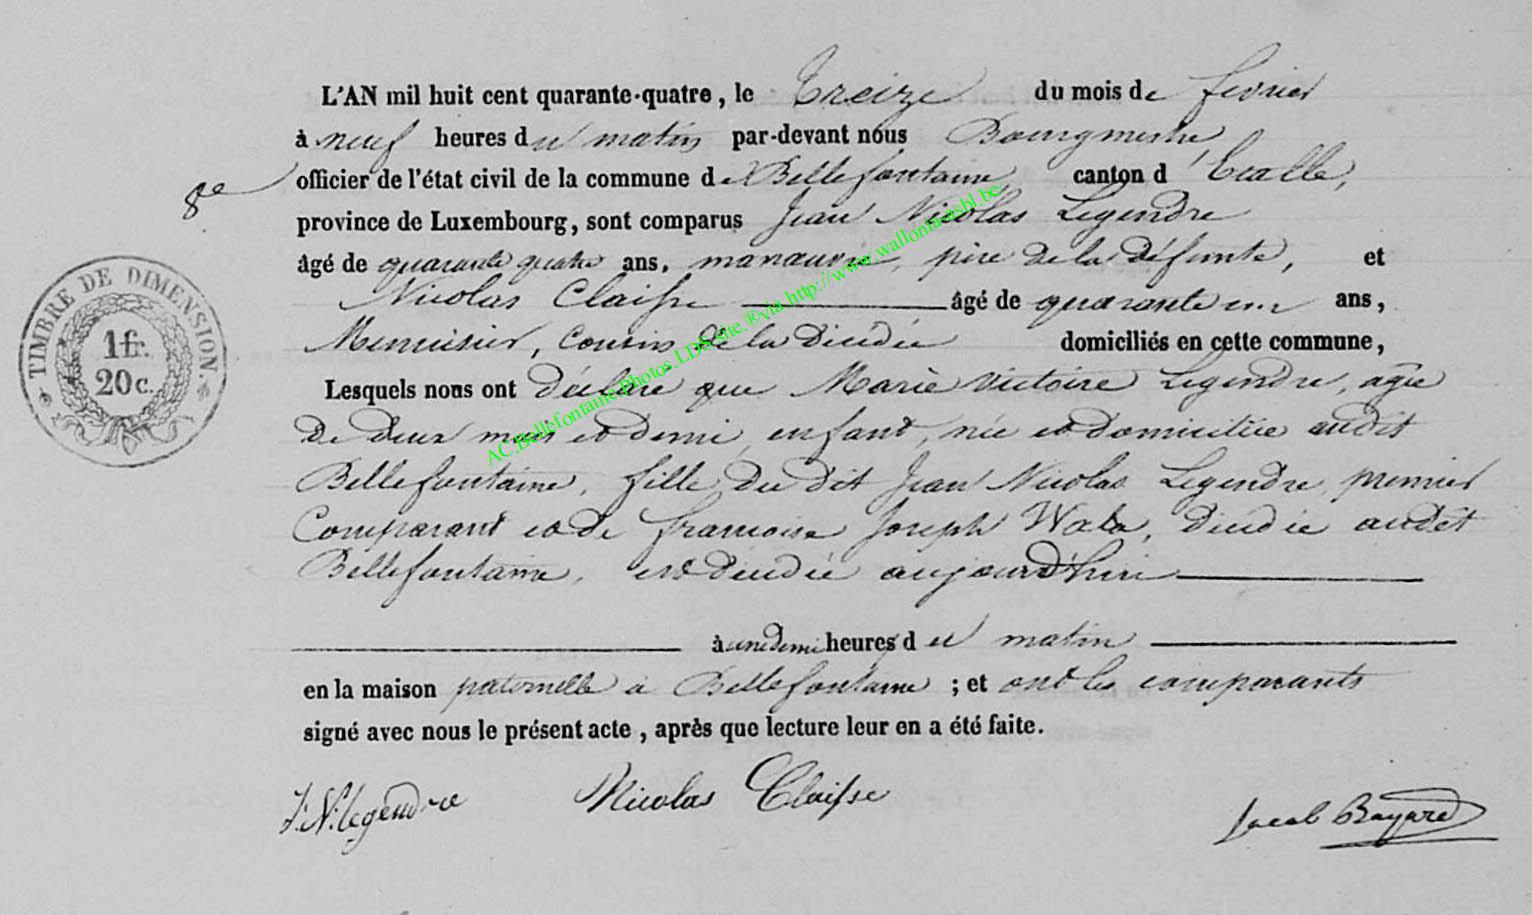 L'AN mil huit cent quarante-quatre, le Treize du mois de fevrier
à neuf heures du matin par-devant nous Bourgmestre,
8e
officier de l'état civil de la commune de Bellefontaine canton d' Etalle,
province de Luxembourg, sont comparus Jean Nicolas Legendre
âgé de quarante quatre ans, manœuvre, père de la défunte, et
Nicolas Claisse âgé de quarante un ans,
Menuisier, Cousin de la Décédée domiciliés en cette commune,
TIMBRE DE DIMENSION
1 fr.
20 c.
Lesquels nous ont déclaré que Marie Victoire Legendre, agée
De Deux mois et demi, enfant, née et domiciliée audit
Bellefontaine, fille du dit Jean Nicolas Legendre, premier
Comparant et de francoise Joseph Decedée audit
Bellefontaine, est décédée aujourd'hui
à une demi heures du matin
en la maison paternelle à Bellefontaine ; et ont les comparants
signé avec nous le présent acte, après que lecture leur en a été faite.
J. N. legendre Nicolas Claisse Jacob Bayard
AC.Bellefontaine.Photos.LDS.site.®via.http://www.wallonia.asbl.be